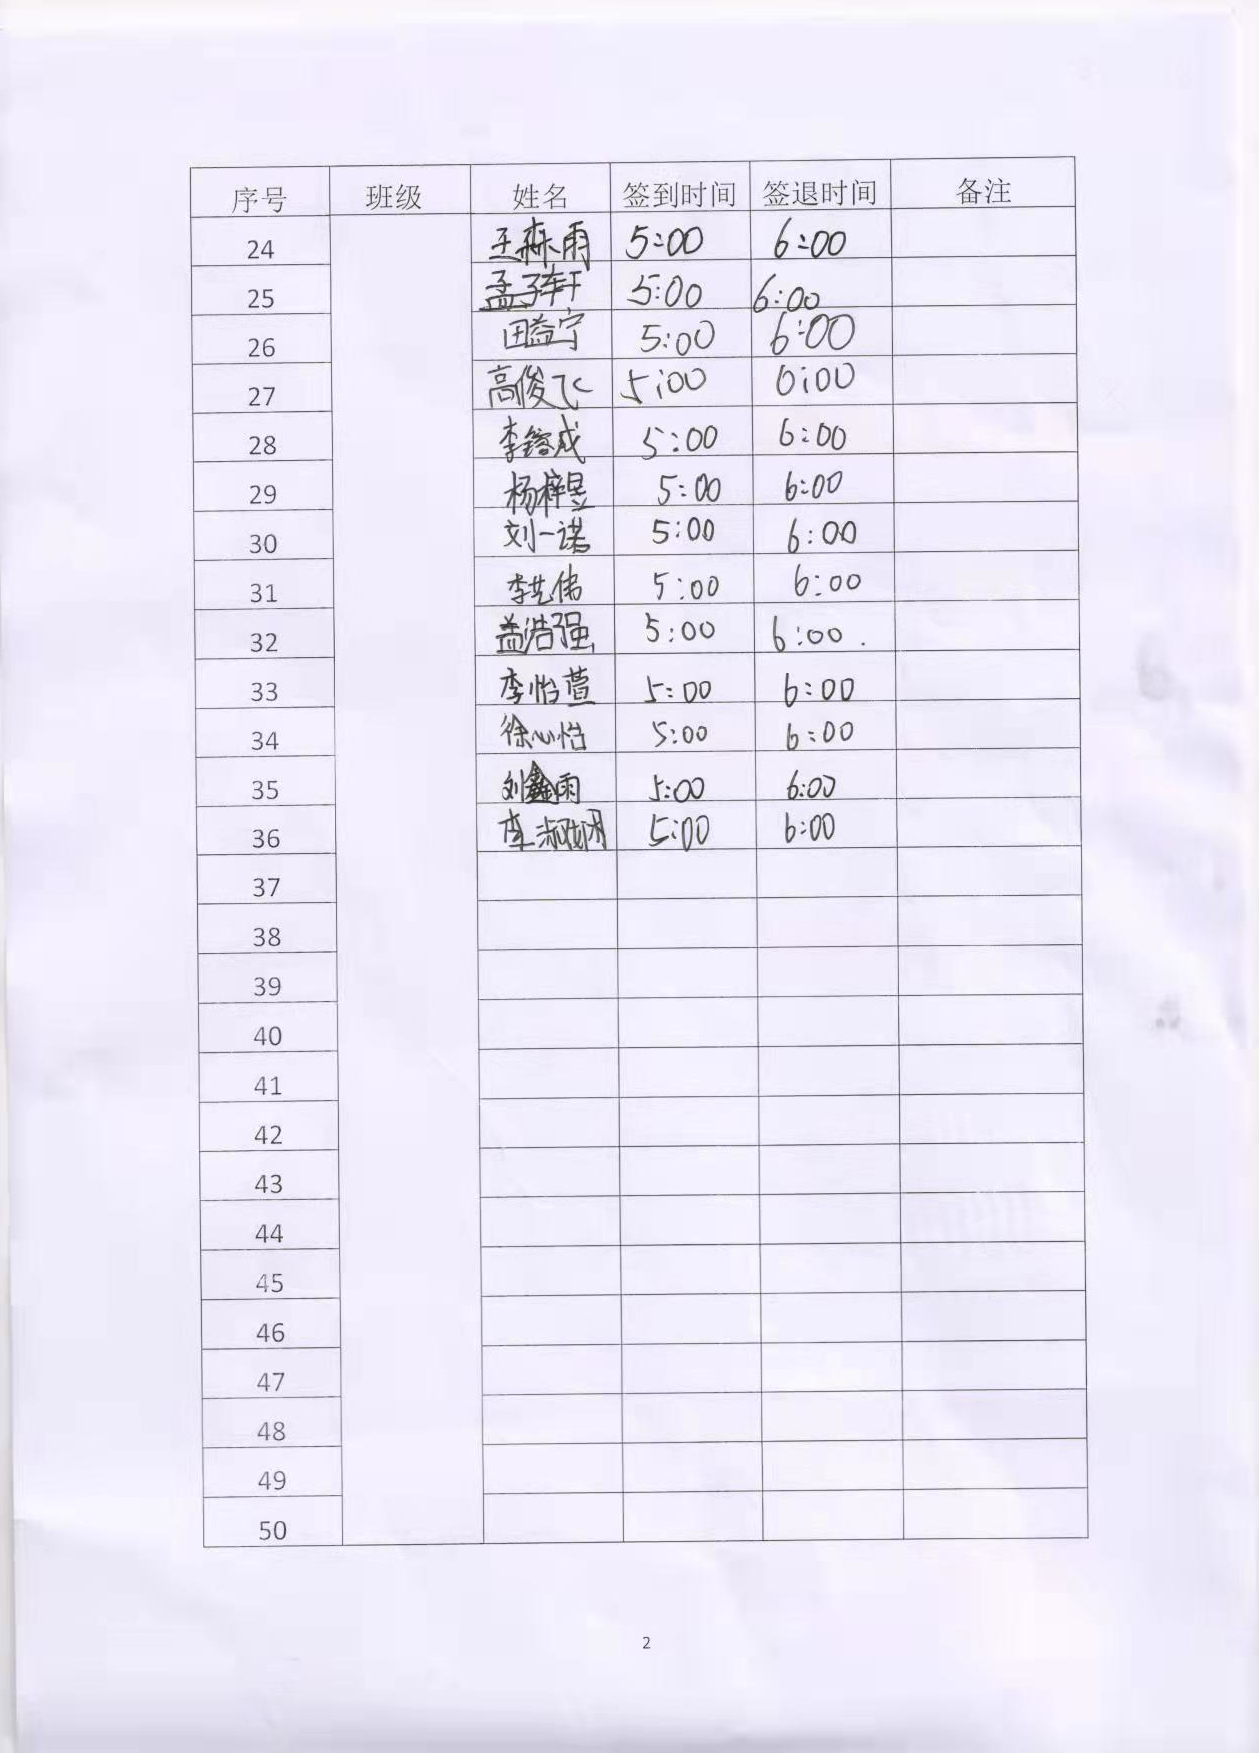 序号 班级 姓名 签到时间 签退时间 备注
24 王森雨 5:00 6:00
25 孟子轩 5:00 6:00
26 田益宁 5:00 6:00
27 高俊飞 5:00 6:00
28 李镕成 5:00 6:00
29 杨梓昱 5:00 6:00
30 刘一诺 5:00 6:00
31 李艺伟 5:00 6:00
32 盖浩强 5:00 6:00.
33 李怡萱 5:00 6:00
34 徐心怡 5:00 6:00
35 刘鑫雨 5:00 6:00
36 李淑娴 5:00 6:00
37
38
39
40
41
42
43
44
45
46
47
48
49
50
2